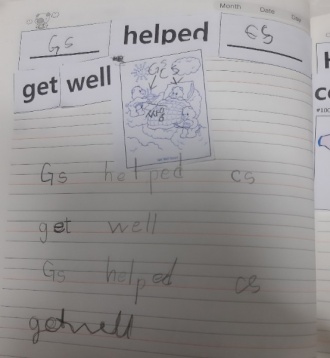 Month Date Day
Gs helped GS
get well
Gs helped cs
get well
Gs helped cs
getwell